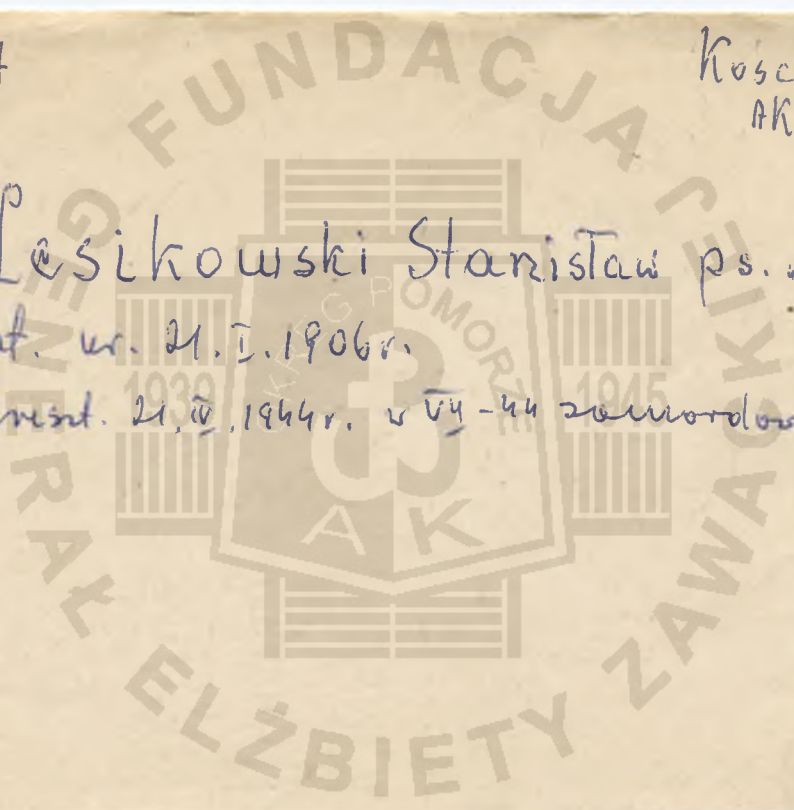 Kosc
AK
Lesikowski Stanisław ps.
ur. 21.I.1906r.
21.IV.1944r. w VII-44 zamordow
FUNDACJA GENERAŁ ELŻBIETY ZAWACKIEJ
OKRĘG POMORZE
1939 1945
AK